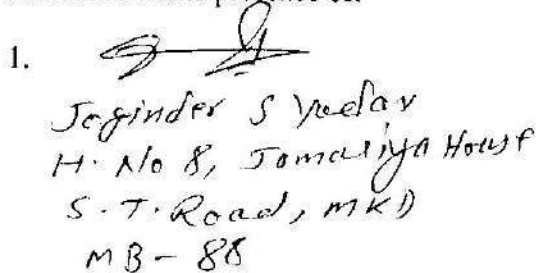 1.
Joginder S Yadav
H. No 8, Jamaliya House
S. T. Road, MKD
MB - 88